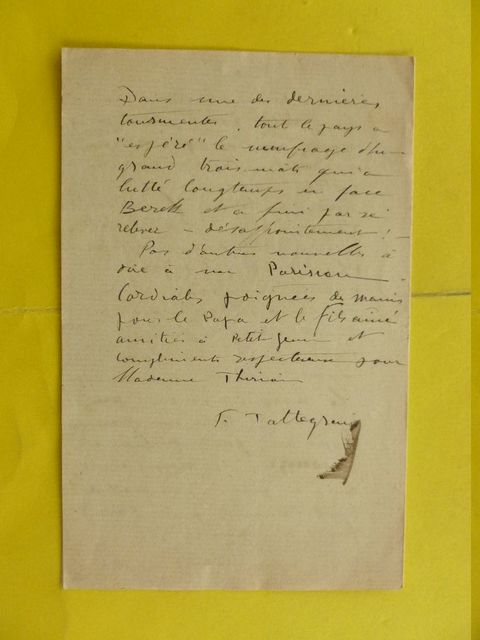 Dans une des dernières
tourmentes, tout le pays a
"espéré" le naufrage d'un
grand trois-mats qui a
lutté longtemps en face
Berck et a fini par se
relever – désappointement !
Pas d'autres nouvelles à
dire à un Parisien
Cordiales poignées de mains
pour le Papa et le fils aîné
amitiés à Petit Jean et
compliments respectueux pour
Madame
F. Tattegrain